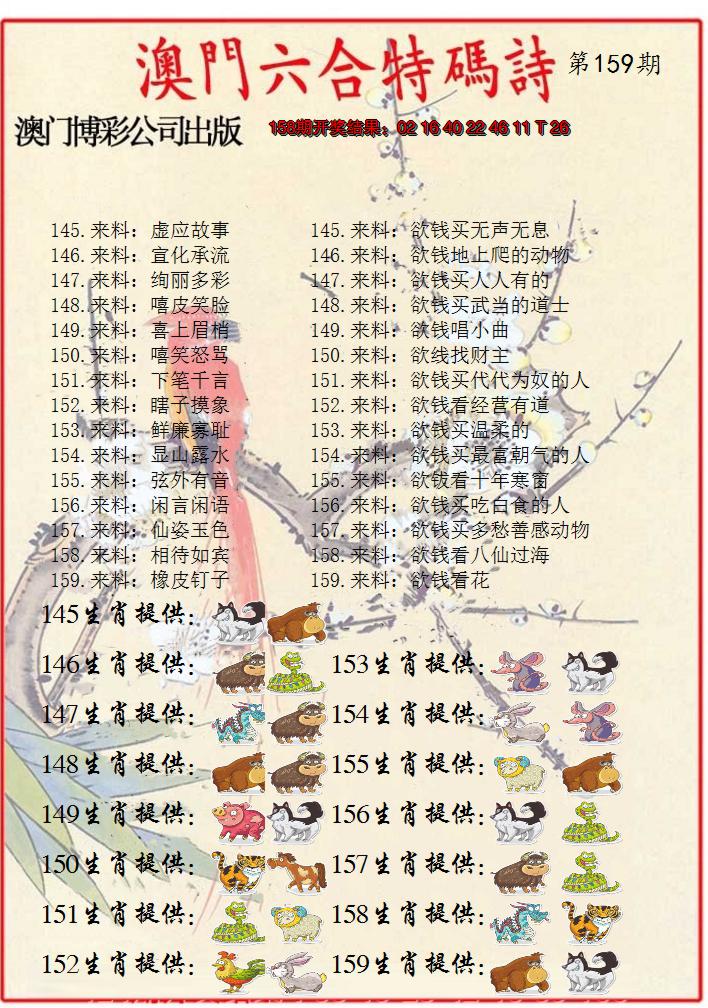 澳門六合特碼詩 第159期
澳门博彩公司出版 158期开奖结果：02 16 40 22 46 11 T 26
145.来料：虚应故事 145.来料：欲钱买无声无息
146.来料：宣化承流 146.来料：欲钱地上爬的动物
147.来料：绚丽多彩 147.来料：欲钱买人人有的
148.来料：嘻皮笑脸 148.来料：欲钱买武当的道士
149.来料：喜上眉梢 149.来料：欲钱唱小曲
150.来料：嘻笑怒骂 150.来料：欲线找财主
151.来料：下笔千言 151.来料：欲钱买代代为奴的人
152.来料：瞎子摸象 152.来料：欲钱看经营有道
153.来料：鲜廉寡耻 153.来料：欲钱买温柔的
154.来料：显山露水 154.来料：欲钱买最富朝气的人
155.来料：弦外有音 155.来料：欲钹看十年寒窗
156.来料：闲言闲语 156.来料：欲钱买吃白食的人
157.来料：仙姿玉色 157.来料：欲钱买多愁善感动物
158.来料：相待如宾 158.来料：欲钱看八仙过海
159.来料：橡皮钉子 159.来料：欲钱看花
145生肖提供：
146生肖提供： 153生肖提供：
147生肖提供： 154生肖提供：
148生肖提供： 155生肖提供：
149生肖提供： 156生肖提供：
150生肖提供： 157生肖提供：
151生肖提供： 158生肖提供：
152生肖提供： 159生肖提供：